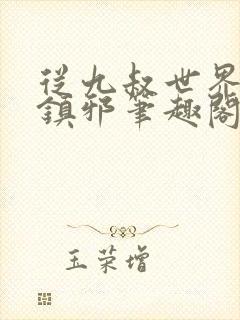 從九叔世界
鎮邪筆趣閣
玉荣增